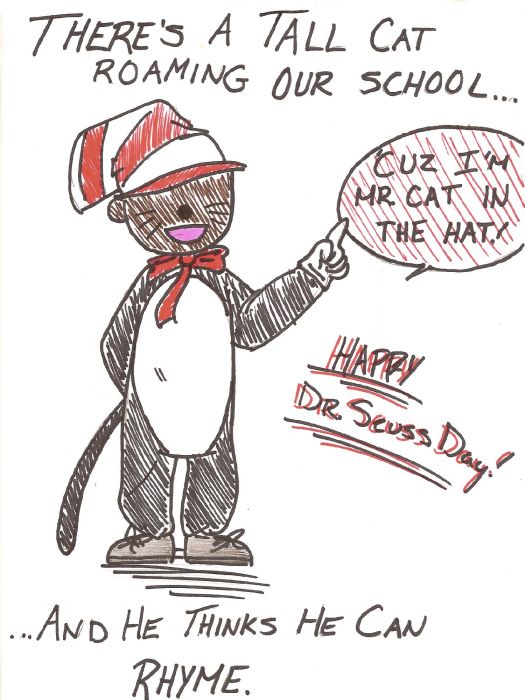 THERE'S A TALL CAT
ROAMING OUR SCHOOL...
'CUZ I'M
MR. CAT IN
THE HAT!
HAPPY
DR. SEUSS DAY!
...AND HE THINKS HE CAN
RHYME.